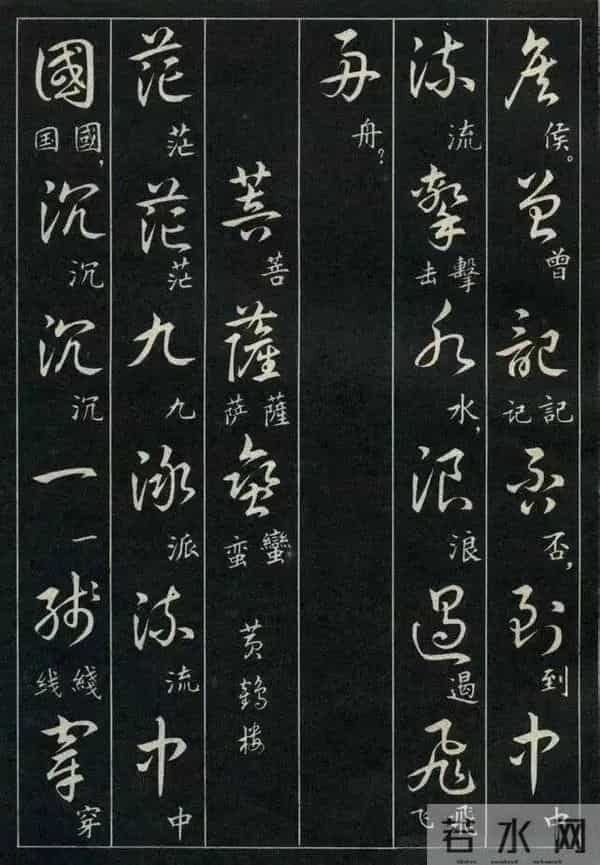 侯曾記否到中
侯。 曾 記记 否, 到 中
流擊水浪遏飛
流 擊击 水, 浪 遏 飛飞
舟
舟?
菩薩蠻
菩 薩萨 蠻蛮
黄鹤楼
茫茫九派流中
茫 茫 九 派 流 中
國沉沉一綫穿
國,国 沉 沉 一 綫线 穿
若水网